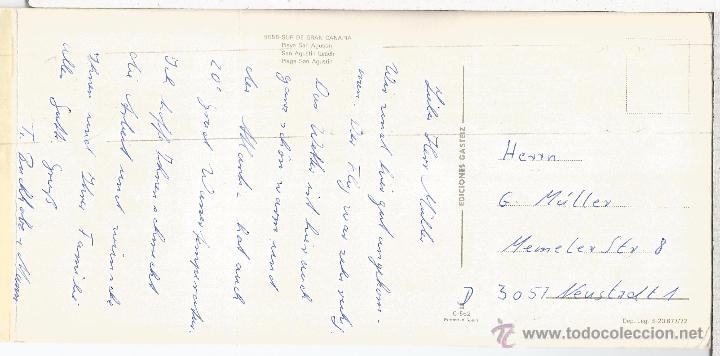 9658-SUR DE GRAN CANARIA
Playa San Agustín
San Agustín beach
Plage San Agustín
Liebe Herr Müller
Wir sind hier gut angekom-
men. Der Flug war sehr ruhig.
Das Wetter ist hier auch
ganz schön warm und
der Atlantik hat auch
20° Grad Wassertemperatur.
Ich hoffe Ihnen schmeckt
die Arbeit und wünsche
Ihnen und Ihrer Familie
alles Gute. Gruß
EDICIONES GASTEIZ
Herrn
G Müller
Memeler Str 8
3057 Neustadt 1
C-562
Printed in Spain
Dep. Leg. B-20.877/72
todocoleccion.net